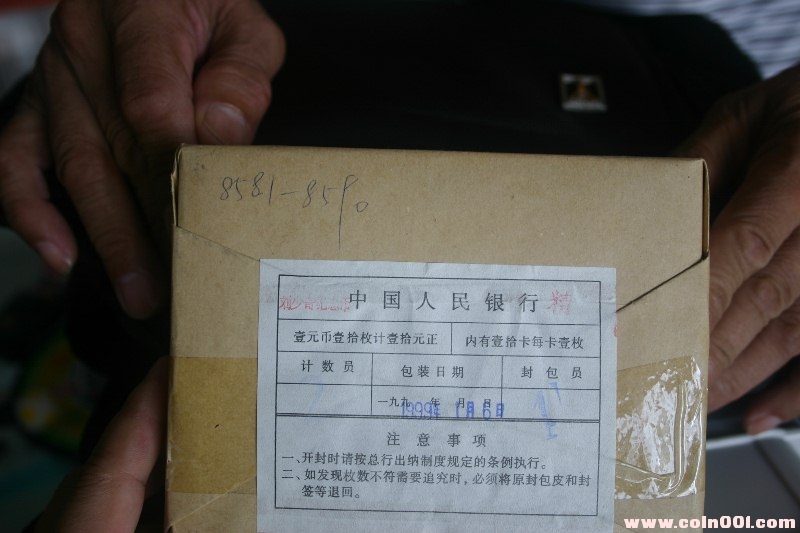 8581-8590
中国人民银行 精
壹元币壹拾枚计壹拾元正
内有壹拾卡每卡壹枚
计数员 包装日期 封包员
一九九 年 月 日
1999年1月6日
注意事项
一、开封时请按总行出纳制度规定的条例执行。
二、如发现枚数不符需要追究时，必须将原封包皮和封
签等退回。
www.coin001.com